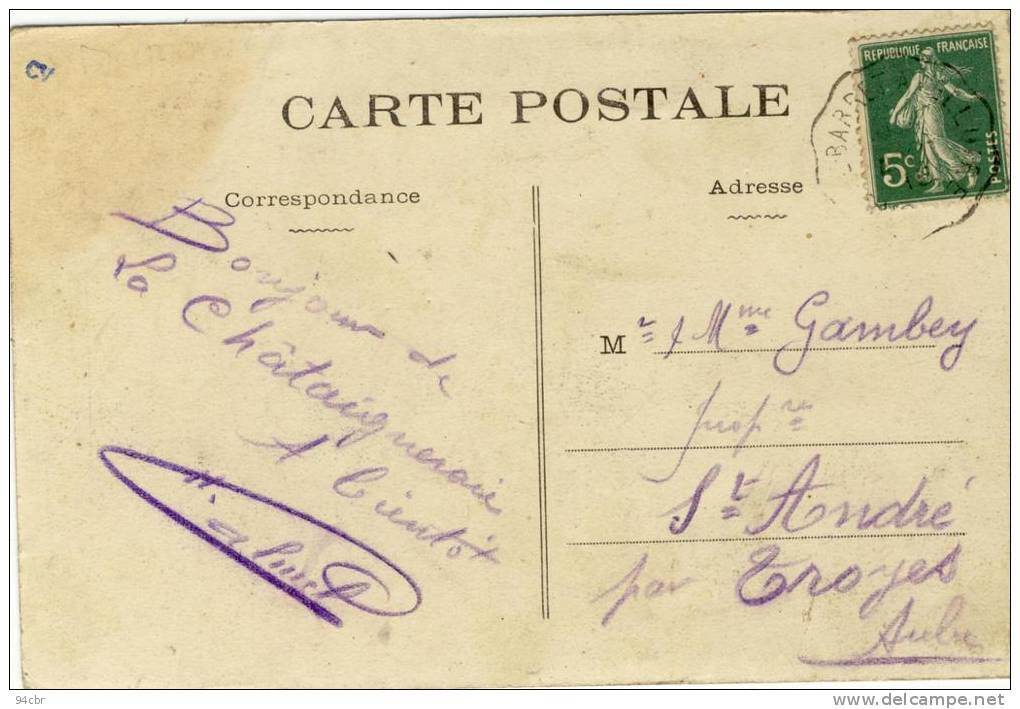 CARTE POSTALE
RÉPUBLIQUE FRANÇAISE
5c
POSTES
Correspondance
Adresse
Bonjour de
La Châtaigneraie
A bientôt
Mr & Mme Gambey
propre
St André
par Troyes
Aube
94cbr
www.delcampe.net